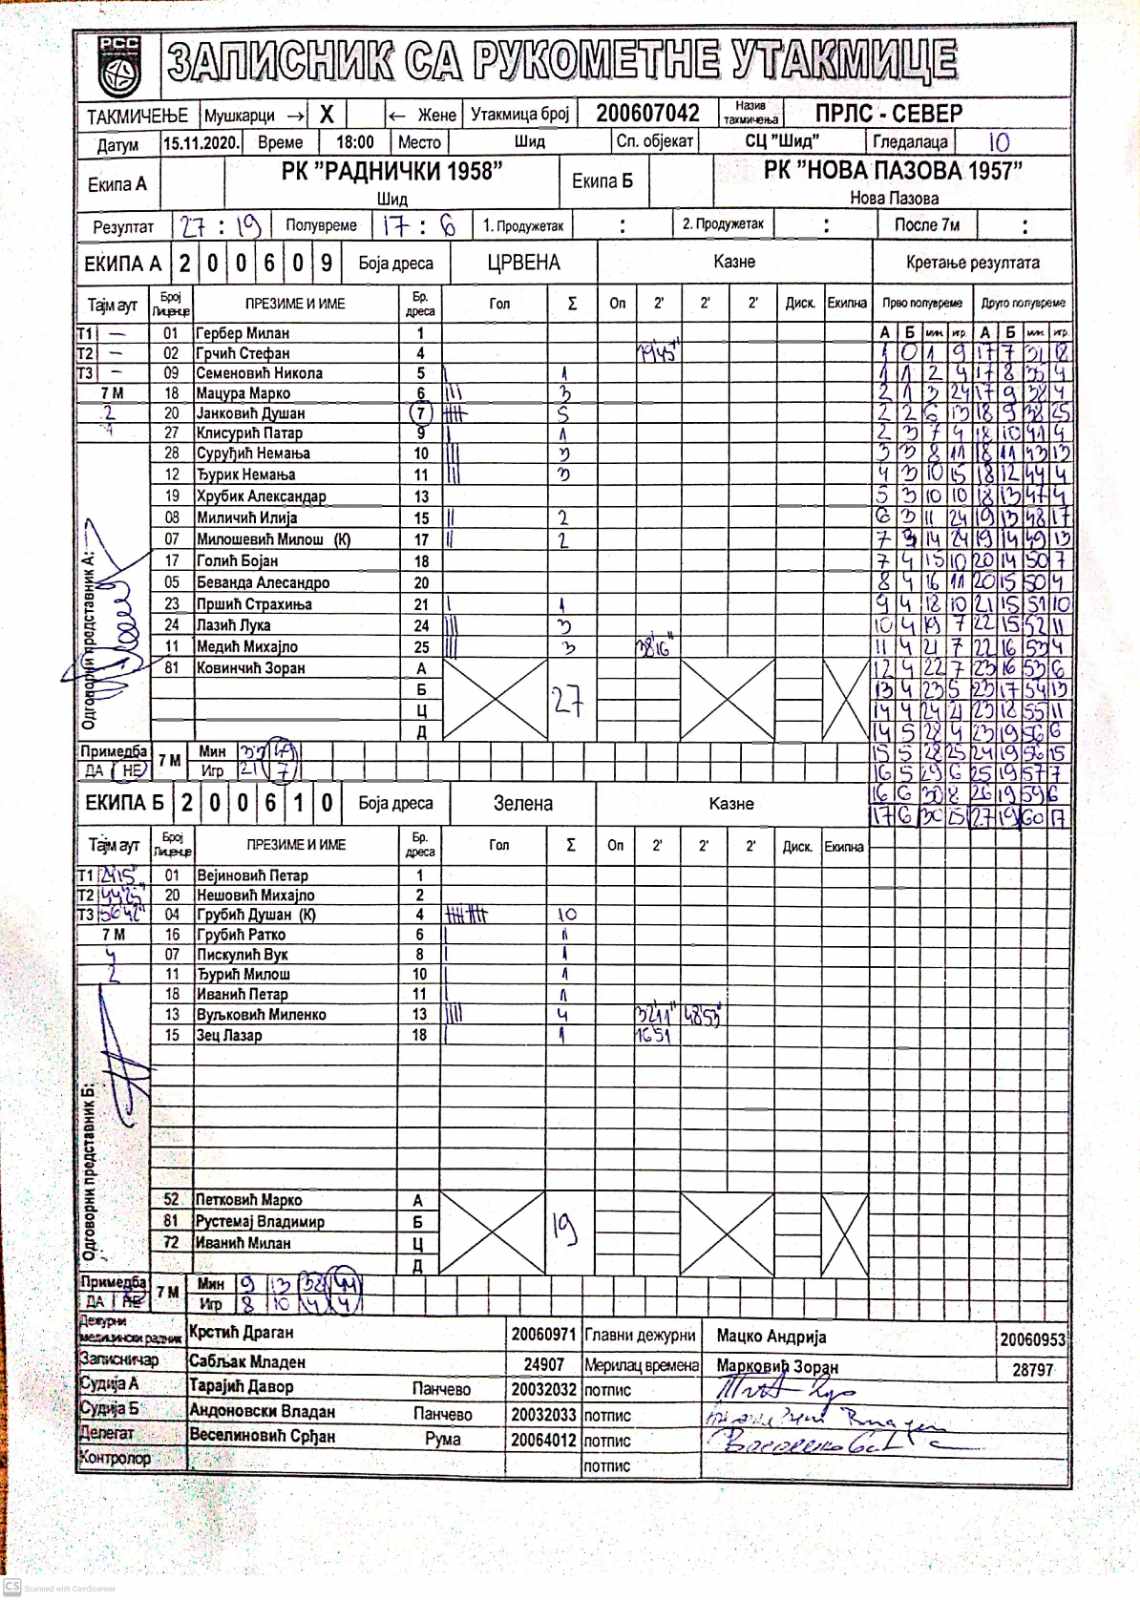 РСС
ЗАПИСНИК СА РУКОМЕТНЕ УТАКМИЦЕ
ТАКМИЧЕЊЕ Мушкарци → X ← Жене Утакмица број 200607042 Назив такмичења ПРЛС - СЕВЕР
Датум 15.11.2020. Време 18:00 Место Шид Сп. објекат СЦ "Шид" Гледалаца 10
Екипа А РК "РАДНИЧКИ 1958" Шид Екипа Б РК "НОВА ПАЗОВА 1957" Нова Пазова
Резултат 27 : 19 Полувреме 17 : 6 1. Продужетак : 2. Продужетак : После 7м :
ЕКИПА А 2 0 0 6 0 9 Боја дреса ЦРВЕНА Казне Кретање резултата
Тајм аут Број Лиценце ПРЕЗИМЕ И ИМЕ Бр. дреса Гол Σ Оп 2' 2' 2' Диск. Екипна Прво полувреме Друго полувреме
Т1 – 01 Гербер Милан 1 А Б мин. игр. А Б мин. игр.
Т2 – 02 Грчић Стефан 4 19'45" 1 0 1 9 17 7 31 8
Т3 – 09 Семеновић Никола 5 1 1 1 2 4 17 8 35 4
7 М 18 Мацура Марко 6 3 2 1 3 24 17 9 38 4
2 20 Јанковић Душан 7 5 2 2 6 13 18 9 38 25
1 27 Клисурић Патар 9 1 2 3 7 4 18 10 41 4
28 Суруџић Немања 10 3 3 3 8 11 18 11 43 13
12 Ђурик Немања 11 3 4 3 10 15 18 12 44 4
19 Хрубик Александар 13 5 3 10 10 18 13 47 4
08 Миличић Илија 15 2 6 3 11 24 19 13 48 17
07 Милошевић Милош (К) 17 2 7 3 14 24 19 14 49 13
17 Голић Бојан 18 7 4 15 10 20 14 50 7
05 Беванда Алесандро 20 8 4 16 11 20 15 50 4
23 Пршић Страхиња 21 1 9 4 18 10 21 15 51 10
24 Лазић Лука 24 3 10 4 19 7 22 15 52 11
11 Медић Михајло 25 3 38'16" 11 4 21 7 22 16 53 4
81 Ковинчић Зоран А 27 12 4 22 7 23 16 53 6
Б 13 4 23 5 23 17 54 13
Ц 14 4 24 21 23 18 55 11
Д 14 5 28 4 23 19 56 6
Одговорни представник А:
Примедба 7 М Мин 33 49 15 5 28 25 24 19 56 15
ДА НЕ Игр 21 7 16 5 29 6 25 19 57 7
ЕКИПА Б 2 0 0 6 1 0 Боја дреса Зелена Казне 16 6 30 8 26 19 59 6
17 6 30 25 27 19 60 17
Тајм аут Број Лиценце ПРЕЗИМЕ И ИМЕ Бр. дреса Гол Σ Оп 2' 2' 2' Диск. Екипна
Т1 24'15" 01 Вејиновић Петар 1
Т2 44'25" 20 Нешовић Михајло 2
Т3 56'42" 04 Грубић Душан (К) 4 10
7 М 16 Грубић Ратко 6 1
4 07 Пискулић Вук 8 1
2 11 Ђурић Милош 10 1
18 Иванић Петар 11 1
13 Вуљковић Миленко 13 4 32'11" 48'53"
15 Зец Лазар 18 1 16'51
Одговорни представник Б:
52 Петковић Марко А 19
81 Рустемај Владимир Б
72 Иванић Милан Ц
Д
Примедба 7 М Мин 9 13 32 44
ДА НЕ Игр 8 10 4 4
Дежурни медицински радник Крстић Драган 20060971 Главни дежурни Мацко Андрија 20060953
Записничар Сабљак Младен 24907 Мерилац времена Марковић Зоран 28797
Судија А Тарајић Давор Панчево 20032032 потпис
Судија Б Андоновски Владан Панчево 20032033 потпис
Делегат Веселиновић Срђан Рума 20064012 потпис
Контролор потпис
CS Scanned with CamScanner